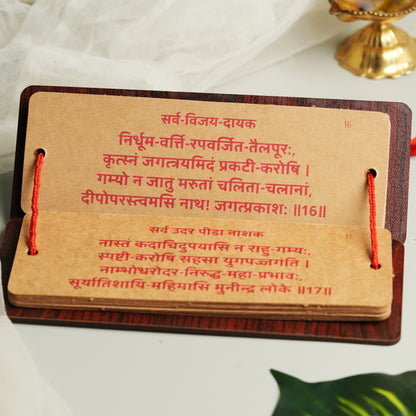 सर्व-विजय-दायक
16
निर्धूम-वर्त्ति-रपवर्जित-तैलपूरः,
कृत्स्नं जगत्त्रयमिदं प्रकटी-करोषि ।
गम्यो न जातु मरुतां चलिता-चलानां,
दीपोपरस्त्वमसि नाथ! जगत्प्रकाशः ॥16॥
सर्व उदर पीडा नाशक
17
नास्तं कदाचिदुपयासि न राहु-गम्यः,
स्पष्टी-करोषि सहसा युगपज्जगंति ।
नाम्भोधरोदर-निरुद्ध-महा-प्रभावः,
सूर्यातिशायि-महिमासि मुनीन्द्र लोके ॥17॥